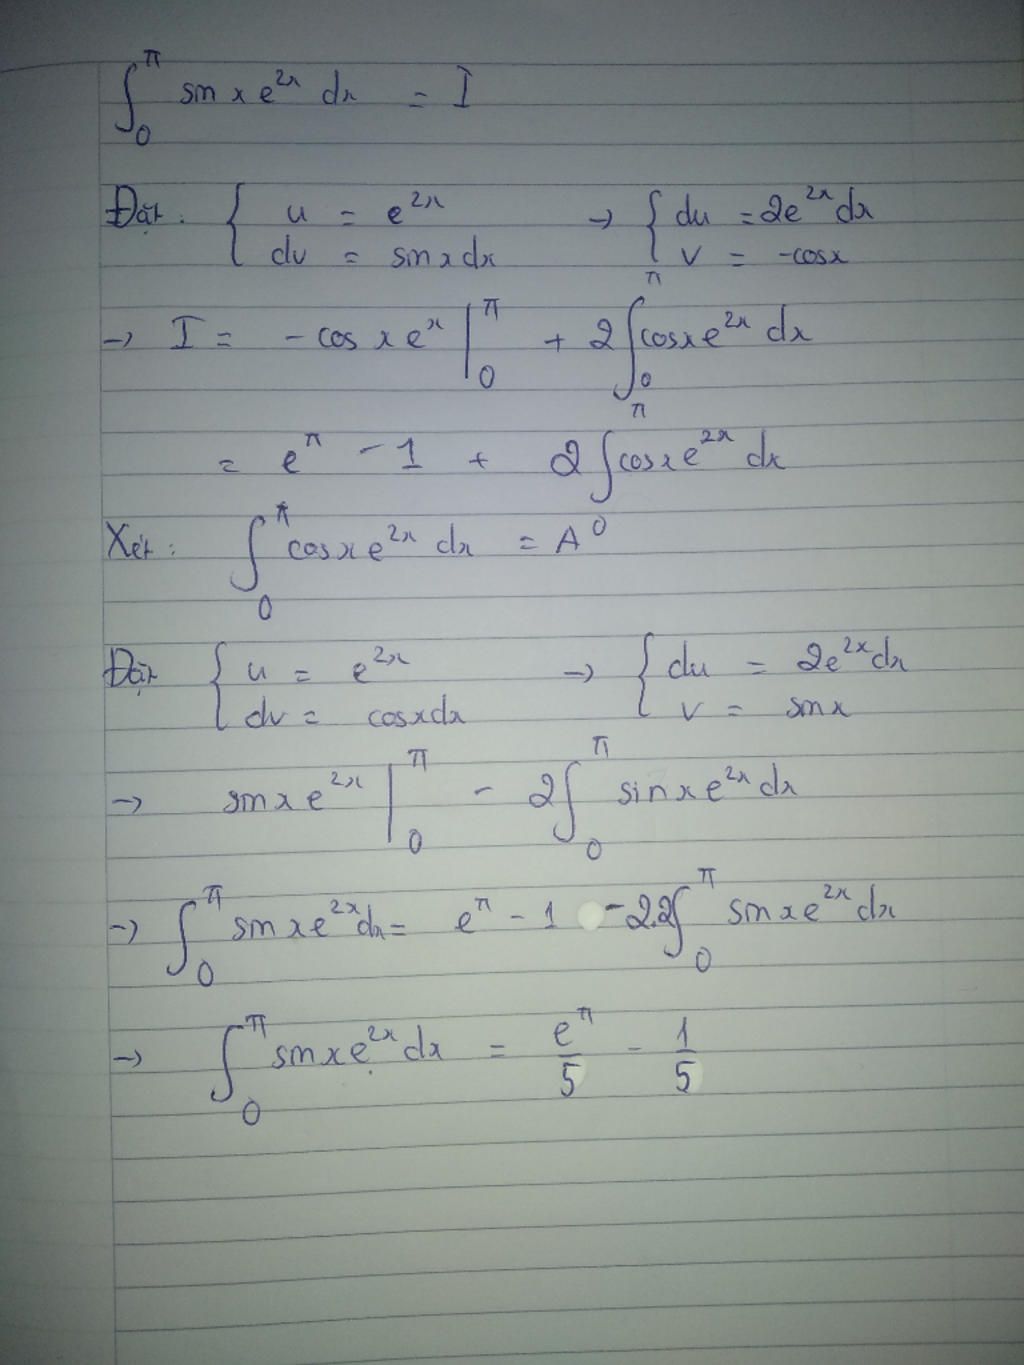 ∫₀^π sin x e^{2x} dx = I
Đặt: { u = e^{2x} → { du = 2e^{2x}dx
dv = sinxdx v = -cosx
→ I = -cos x e^x |₀^π + 2∫₀^π cosxe^{2x} dx
= e^π - 1 + 2∫₀^π cosxe^{2x} dx
Xét: ∫₀^π cosxe^{2x} dx = A
Đặt { u = e^{2x} → { du = 2e^{2x}dx
dv = cosxdx v = sinx
→ sinxe^{2x} |₀^π - 2∫₀^π sinxe^{2x}dx
→ ∫₀^π sinxe^{2x}dx = e^π - 1 - 2.2∫₀^π sinxe^{2x}dx
→ ∫₀^π sinxe^{2x}dx = e^π/5 - 1/5